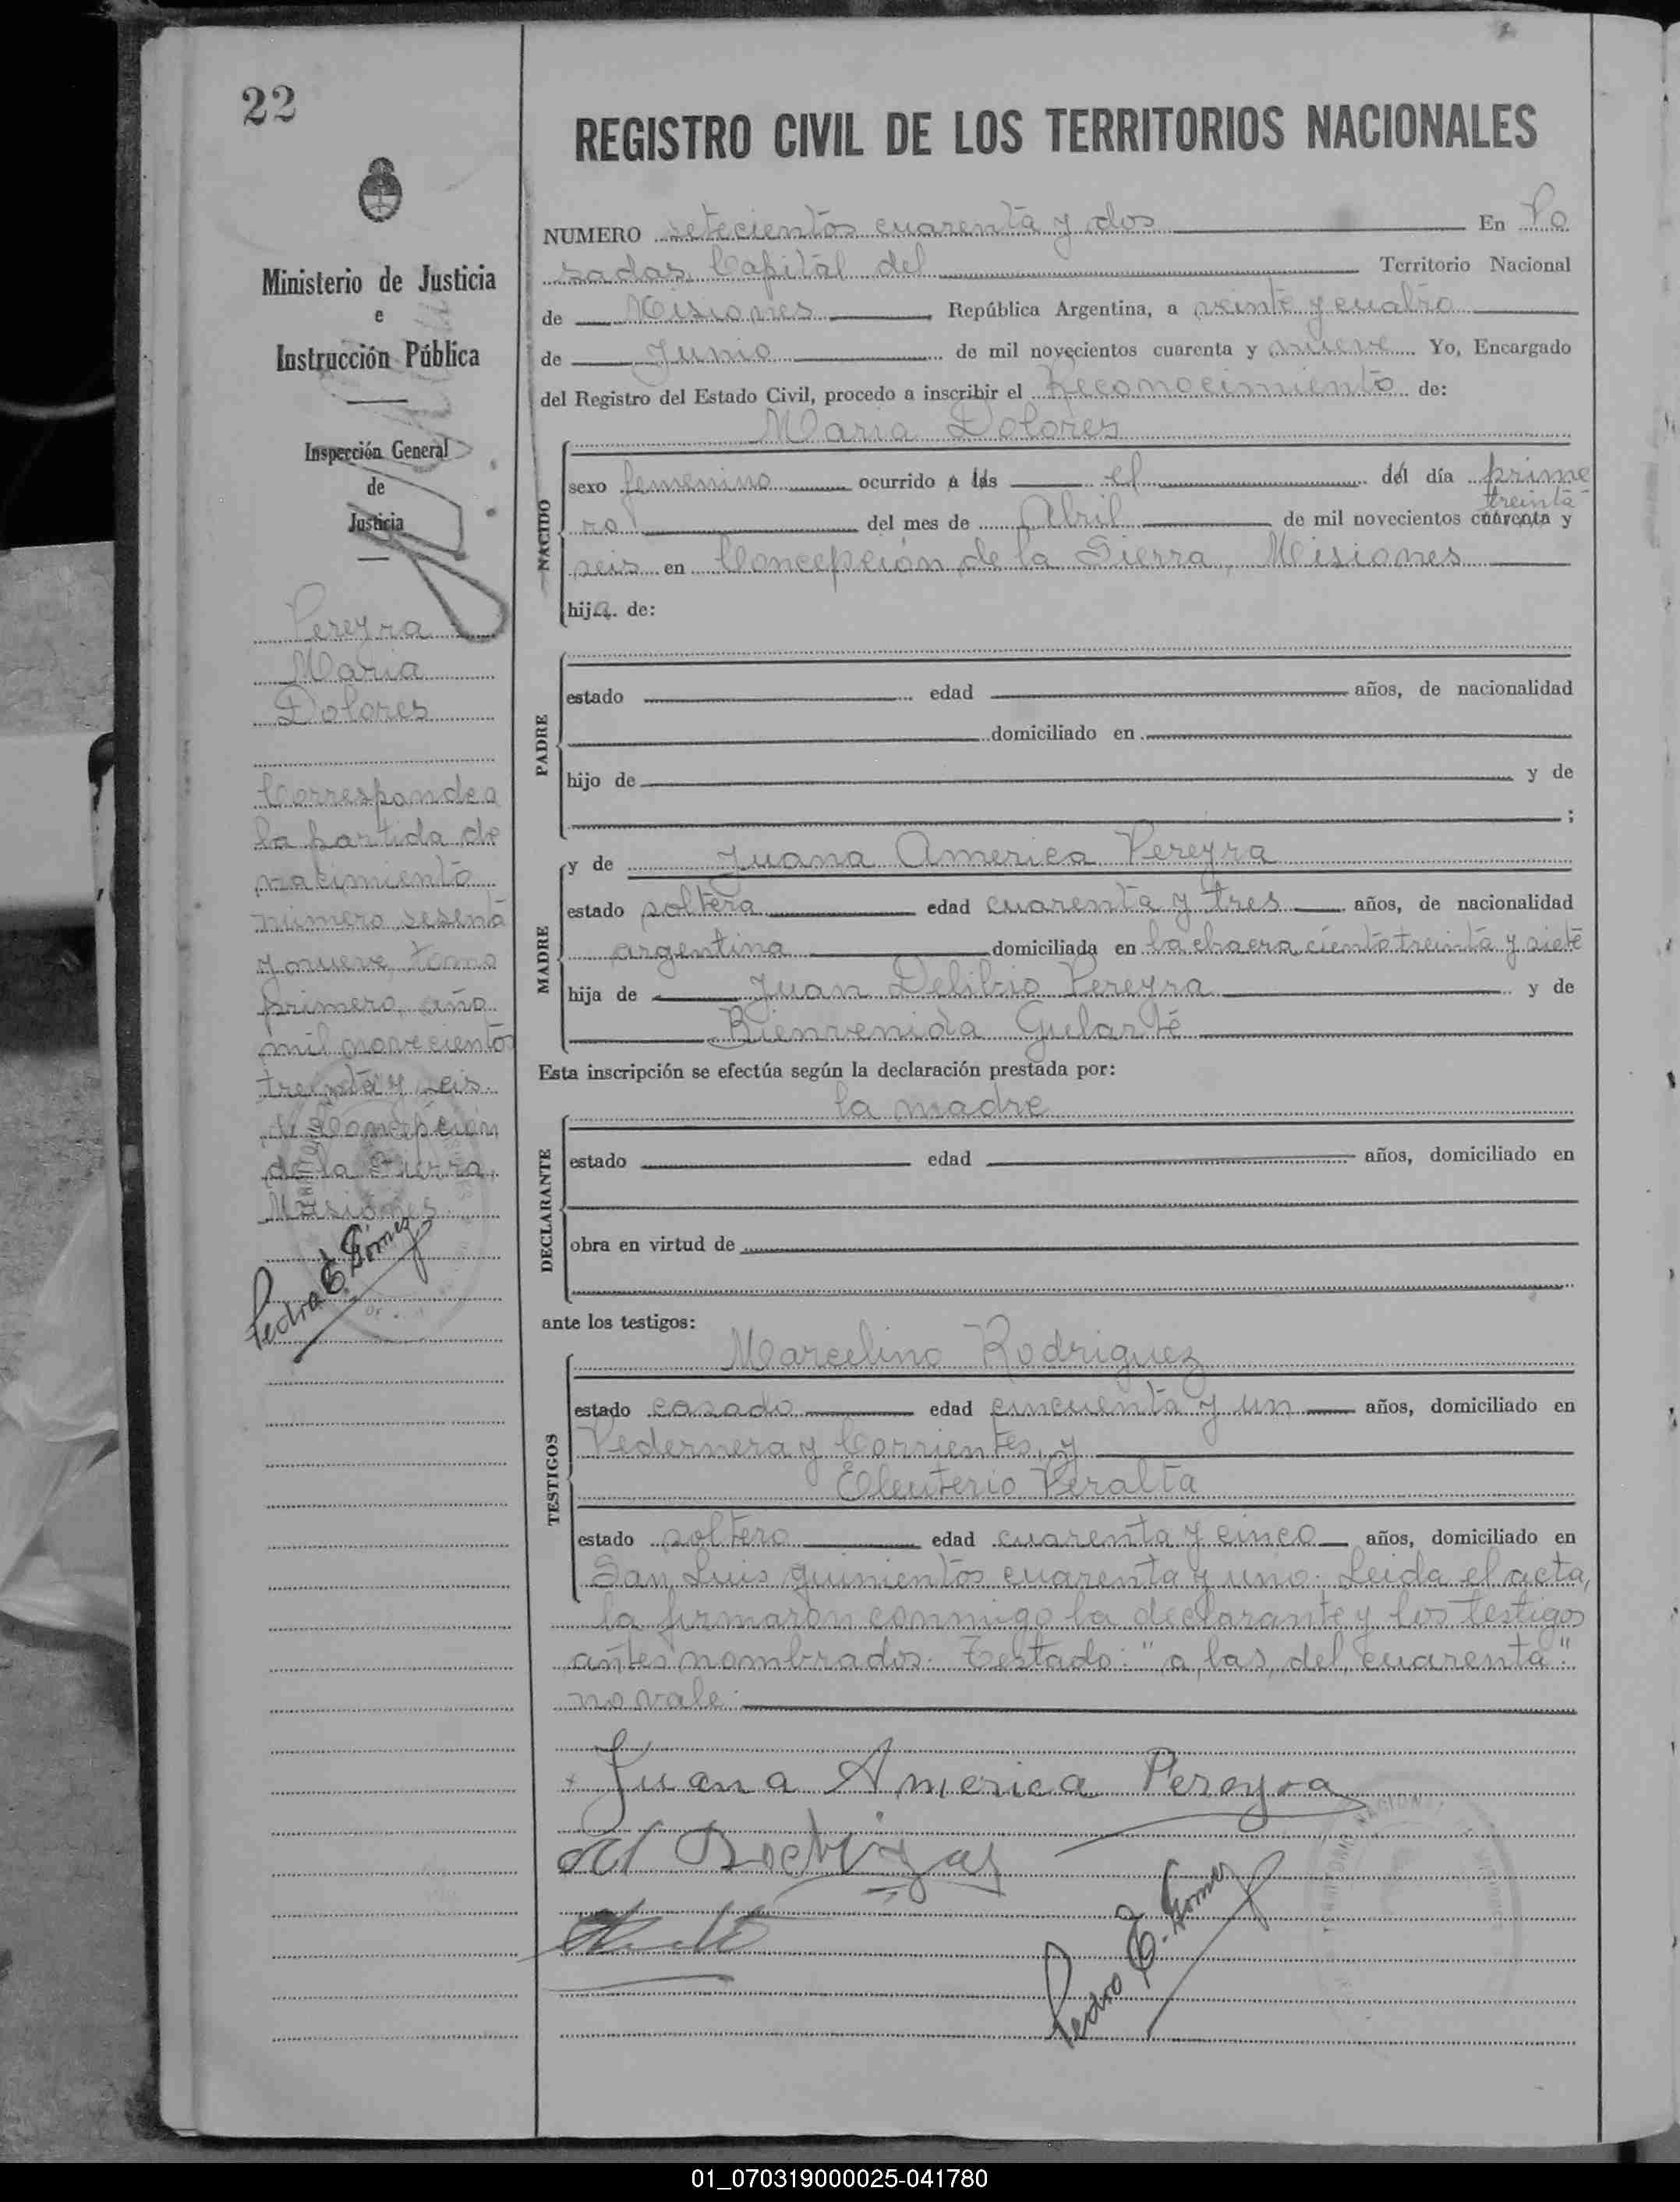 22
Ministerio de Justicia
e
Instrucción Pública
Inspección General
de
Justicia
Pereyra
Maria
Dolores
Corresponde a
la partida de
nacimiento
número sesenta
y nueve, tomo
primero, año
mil novecientos
treinta y seis
de Concepción
de la Sierra,
Misiones.
Pedro E. Gómez
REGISTRO CIVIL DE LOS TERRITORIOS NACIONALES
NUMERO setecientos cuarenta y dos En Po
sadas, Capital del Territorio Nacional
de Misiones República Argentina, a veinte y cuatro
de Junio de mil novecientos cuarenta y nueve Yo, Encargado
del Registro del Estado Civil, procedo a inscribir el Reconocimiento de:
Maria Dolores
NACIDO
sexo femenino ocurrido a las el del día prime
treinta
ro del mes de Abril de mil novecientos cuarenta y
seis en Concepción de la Sierra, Misiones
hija de:
PADRE
estado edad años, de nacionalidad
domiciliado en
hijo de y de
;
MADRE
y de Juana America Pereyra
estado soltera edad cuarenta y tres años, de nacionalidad
argentina domiciliada en la chacra ciento treinta y siete
hija de Juan Pereyra y de
Bienvenida Gularte
Esta inscripción se efectúa según la declaración prestada por:
la madre
DECLARANTE
estado edad años, domiciliado en
obra en virtud de
ante los testigos:
TESTIGOS
Marcelino Rodriguez
estado casado edad cincuenta y un años, domiciliado en
Pedernera y Corrientes, y
Eleuterio Peralta
estado soltero edad cuarenta y cinco años, domiciliado en
San Luis quinientos cuarenta y uno. Leida el acta,
la firmaron conmigo la declarante y los testigos
antes nombrados. Testado: "a, las, del, cuarenta":
no vale.
Juana America Pereyra
Pedro E. Gomez
01_070319000025-041780